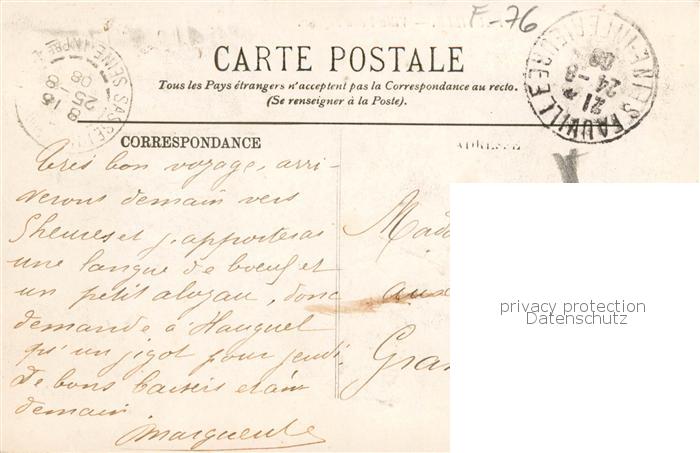 F-76
CARTE POSTALE
Tous les Pays étrangers n'acceptent pas la Correspondance au recto.
(Se renseigner à la Poste).
CORRESPONDANCE
ADRESSE
FAUVILLE
21
24-8
08
25-8
08
Très bon voyage, arri-
verons demain vers
5 heures et j'apporterai
une langue de bœuf et
un petit aloyau, donc
demande à Hauguel
qu'un jigot pour jeudi.
De bons baisers et à
demain
Marguerite
Mada
aux
Gra
privacy protection
Datenschutz